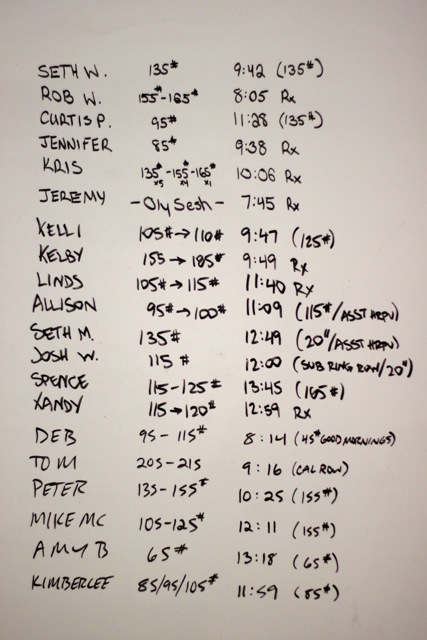 SETH W. 135# 9:42 (135#)
ROB W. 155#-165# 8:05 Rx
CURTIS P. 95# 11:28 (135#)
JENNIFER 85# 9:38 Rx
KRIS 135#-155#-165# 10:06 Rx
x5 x4 x1
JEREMY -Oly Sesh- 7:45 Rx
KELLI 105#→110# 9:47 (125#)
KELBY 155→185# 9:49 Rx
LINDS 105#→115# 11:40 Rx
ALLISON 95#→100# 11:09 (115#/ASST HRPN)
SETH M. 135# 12:49 (20"/ASST HRPN)
JOSH W. 115# 12:00 (SUB RING ROW/20")
SPENCE 115-125# 13:45 (165#)
XANDY 115→120# 12:59 Rx
DEB 95-115# 8:14 (45# GOOD MORNINGS)
TOM 205-215 9:16 (CAL ROW)
PETER 135-155# 10:25 (155#)
MIKE MC 105-125# 12:11 (155#)
AMY B 65# 13:18 (65#)
KIMBERLEE 85/95/105# 11:59 (85#)